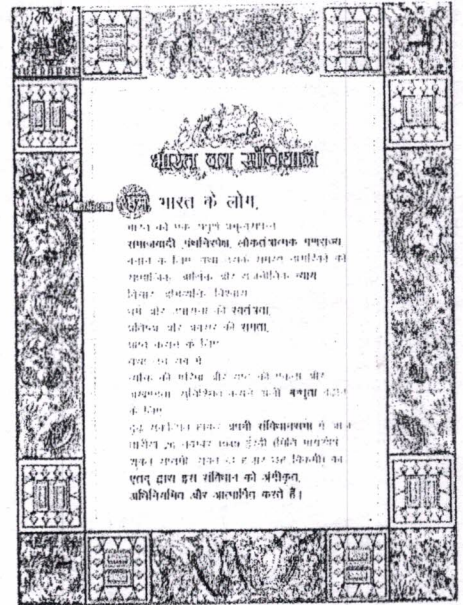 भारत का संविधान
हम भारत के लोग,
भारत को एक
समाजवादी पंथनिरपेक्ष, लोकतंत्रात्मक गणराज्य
बनाने के लिए, तथा उसके समस्त नागरिकों को
सामाजिक, आर्थिक और राजनैतिक न्याय
विचार, अभिव्यक्ति, विश्वास
धर्म और उपासना की स्वतंत्रता,
प्रतिष्ठा और अवसर की समता,
प्राप्त कराने के लिए
तथा उन सब में
व्यक्ति की गरिमा और राष्ट्र की एकता और
अखण्डता सुनिश्चित कराने वाली बन्धुता बढ़ाने
के लिए
दृढ़ संकल्पित होकर अपनी संविधानसभा में आज
तारीख 26 नवम्बर
एतद् द्वारा इस संविधान को अंगीकृत,
अधिनियमित और आत्मार्पित करते हैं।